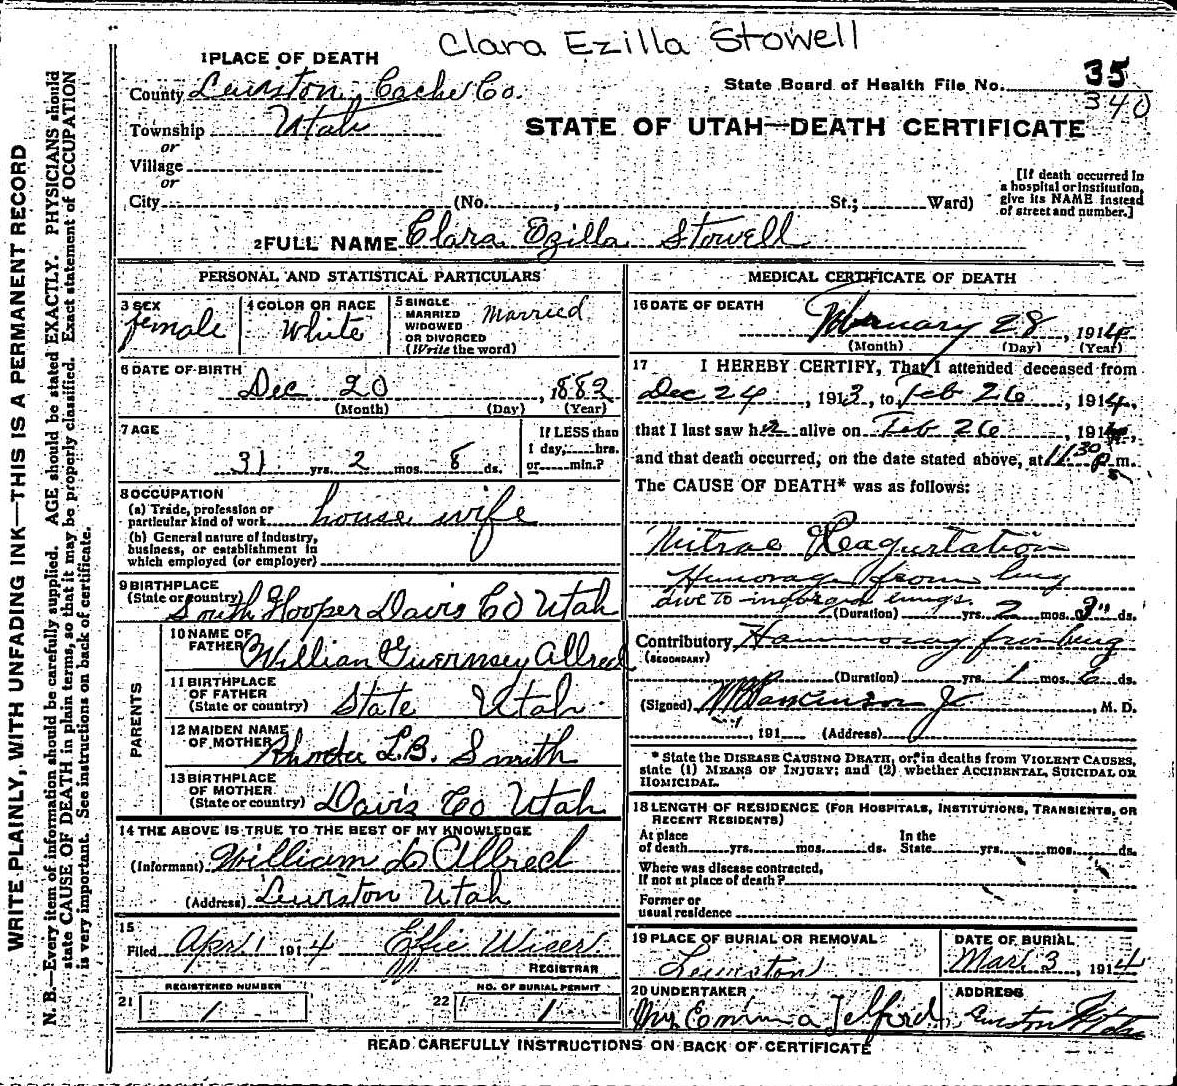 Clara Ezilla Stowell
1 PLACE OF DEATH
County Lewiston, Cache Co.
State Board of Health File No. 35
340
Township Utah
STATE OF UTAH—DEATH CERTIFICATE
or
Village
or
City (No. , St.; Ward)
[If death occurred in
a hospital or institution,
give its NAME instead
of street and number.]
2 FULL NAME Clara Ezilla Stowell
PERSONAL AND STATISTICAL PARTICULARS
3 SEX
female
4 COLOR OR RACE
White
5 SINGLE
MARRIED
WIDOWED
OR DIVORCED
(Write the word)
Married
6 DATE OF BIRTH
Dec 20, 1882
(Month) (Day) (Year)
7 AGE
31 yrs. 2 mos. 8 ds.
If LESS than
1 day, hrs.
or min.?
8 OCCUPATION
(a) Trade, profession or
particular kind of work house wife
(b) General nature of Industry,
business, or establishment in
which employed (or employer)
9 BIRTHPLACE
(State or country) South Hooper Davis Co Utah
PARENTS
10 NAME OF
FATHER William Guernsey Allred
11 BIRTHPLACE
OF FATHER
(State or country) State Utah
12 MAIDEN NAME
OF MOTHER Rhoda L.B. Smith
13 BIRTHPLACE
OF MOTHER
(State or country) Davis Co Utah
14 THE ABOVE IS TRUE TO THE BEST OF MY KNOWLEDGE
(Informant) William L Allred
(Address) Lewiston Utah
15
Filed April 1 1914 Effie Wiser
REGISTRAR
REGISTERED NUMBER
21 1
NO. OF BURIAL PERMIT
22 1
MEDICAL CERTIFICATE OF DEATH
16 DATE OF DEATH
February 28, 1914
(Month) (Day) (Year)
17 I HEREBY CERTIFY, That I attended deceased from
Dec 24, 1913, to Feb 26, 1914,
that I last saw her alive on Feb 26, 1914,
and that death occurred, on the date stated above, at 11 30 p m.
The CAUSE OF DEATH* was as follows:
Mitrae Reagurtation
from lung
due to lungs.
(Duration) yrs. 2 mos. ds.
Contributory from lung
(SECONDARY)
(Duration) yrs. 1 mos. 6 ds.
(Signed) Jr. , M. D.
, 191 (Address)
* State the DISEASE CAUSING DEATH, or, in deaths from VIOLENT CAUSES,
state (1) MEANS OF INJURY; and (2) whether ACCIDENTAL, SUICIDAL OR
HOMICIDAL.
18 LENGTH OF RESIDENCE (FOR HOSPITALS, INSTITUTIONS, TRANSIENTS, OR
RECENT RESIDENTS)
At place
of death yrs. mos. ds.
In the
State yrs. mos. ds.
Where was disease contracted,
If not at place of death?
Former or
usual residence
19 PLACE OF BURIAL OR REMOVAL
Lewiston
DATE OF BURIAL
Mar 3, 1914
20 UNDERTAKER
Mrs Emma Telford
ADDRESS
Lewiston Utah
READ CAREFULLY INSTRUCTIONS ON BACK OF CERTIFICATE
WRITE PLAINLY, WITH UNFADING INK—THIS IS A PERMANENT RECORD
N. B.—Every item of information should be carefully supplied. AGE should be stated EXACTLY. PHYSICIANS should
state CAUSE OF DEATH in plain terms, so that it may be properly classified. Exact statement of OCCUPATION
is very important. See instructions on back of certificate.